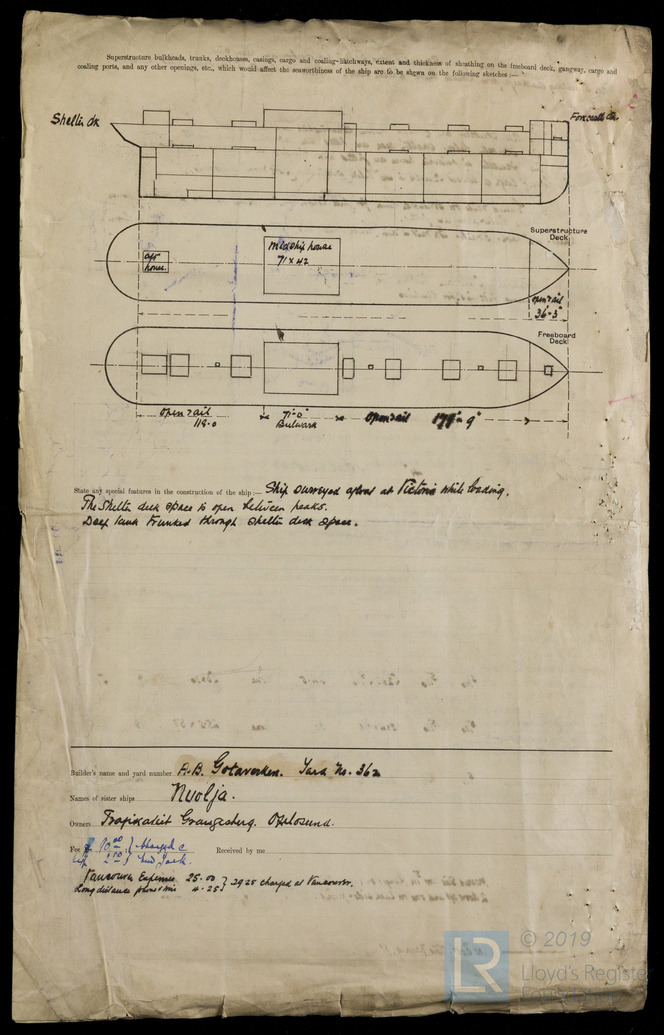 Superstructure bulkheads, trunks, deckhouses, casings, cargo and coaling-hatchways, extent and thickness of sheathing on the freeboard deck, gangway, cargo and
coaling ports, and any other openings, etc., which would affect the seaworthiness of the ship are to be shewn on the following sketches :—
Shelter dk
Forecastle dk
Superstructure
Deck
aft
house
midship house
71 x 42
open rail
36'-3"
Freeboard
Deck
open rail
118-0
71'-0"
Bulwark
open rail 179'-9"
State any special features in the construction of the ship :— Ship surveyed afloat at Victoria while loading.
The shelter deck space is open between peaks.
Deep tank trunked through shelter deck space.
Builder's name and yard number A.B. Gotaverken. Yard No. 362
Names of sister ships Nuolja.
Owners Trafikaktieb Grangesberg. Oxelosund.
Fee Received by me
Vancouver Expenses 25.00
Long distance phone 4.25 } 29.25 charged at Vancouver.
LR
© 2019
Lloyd's Register
Foundation